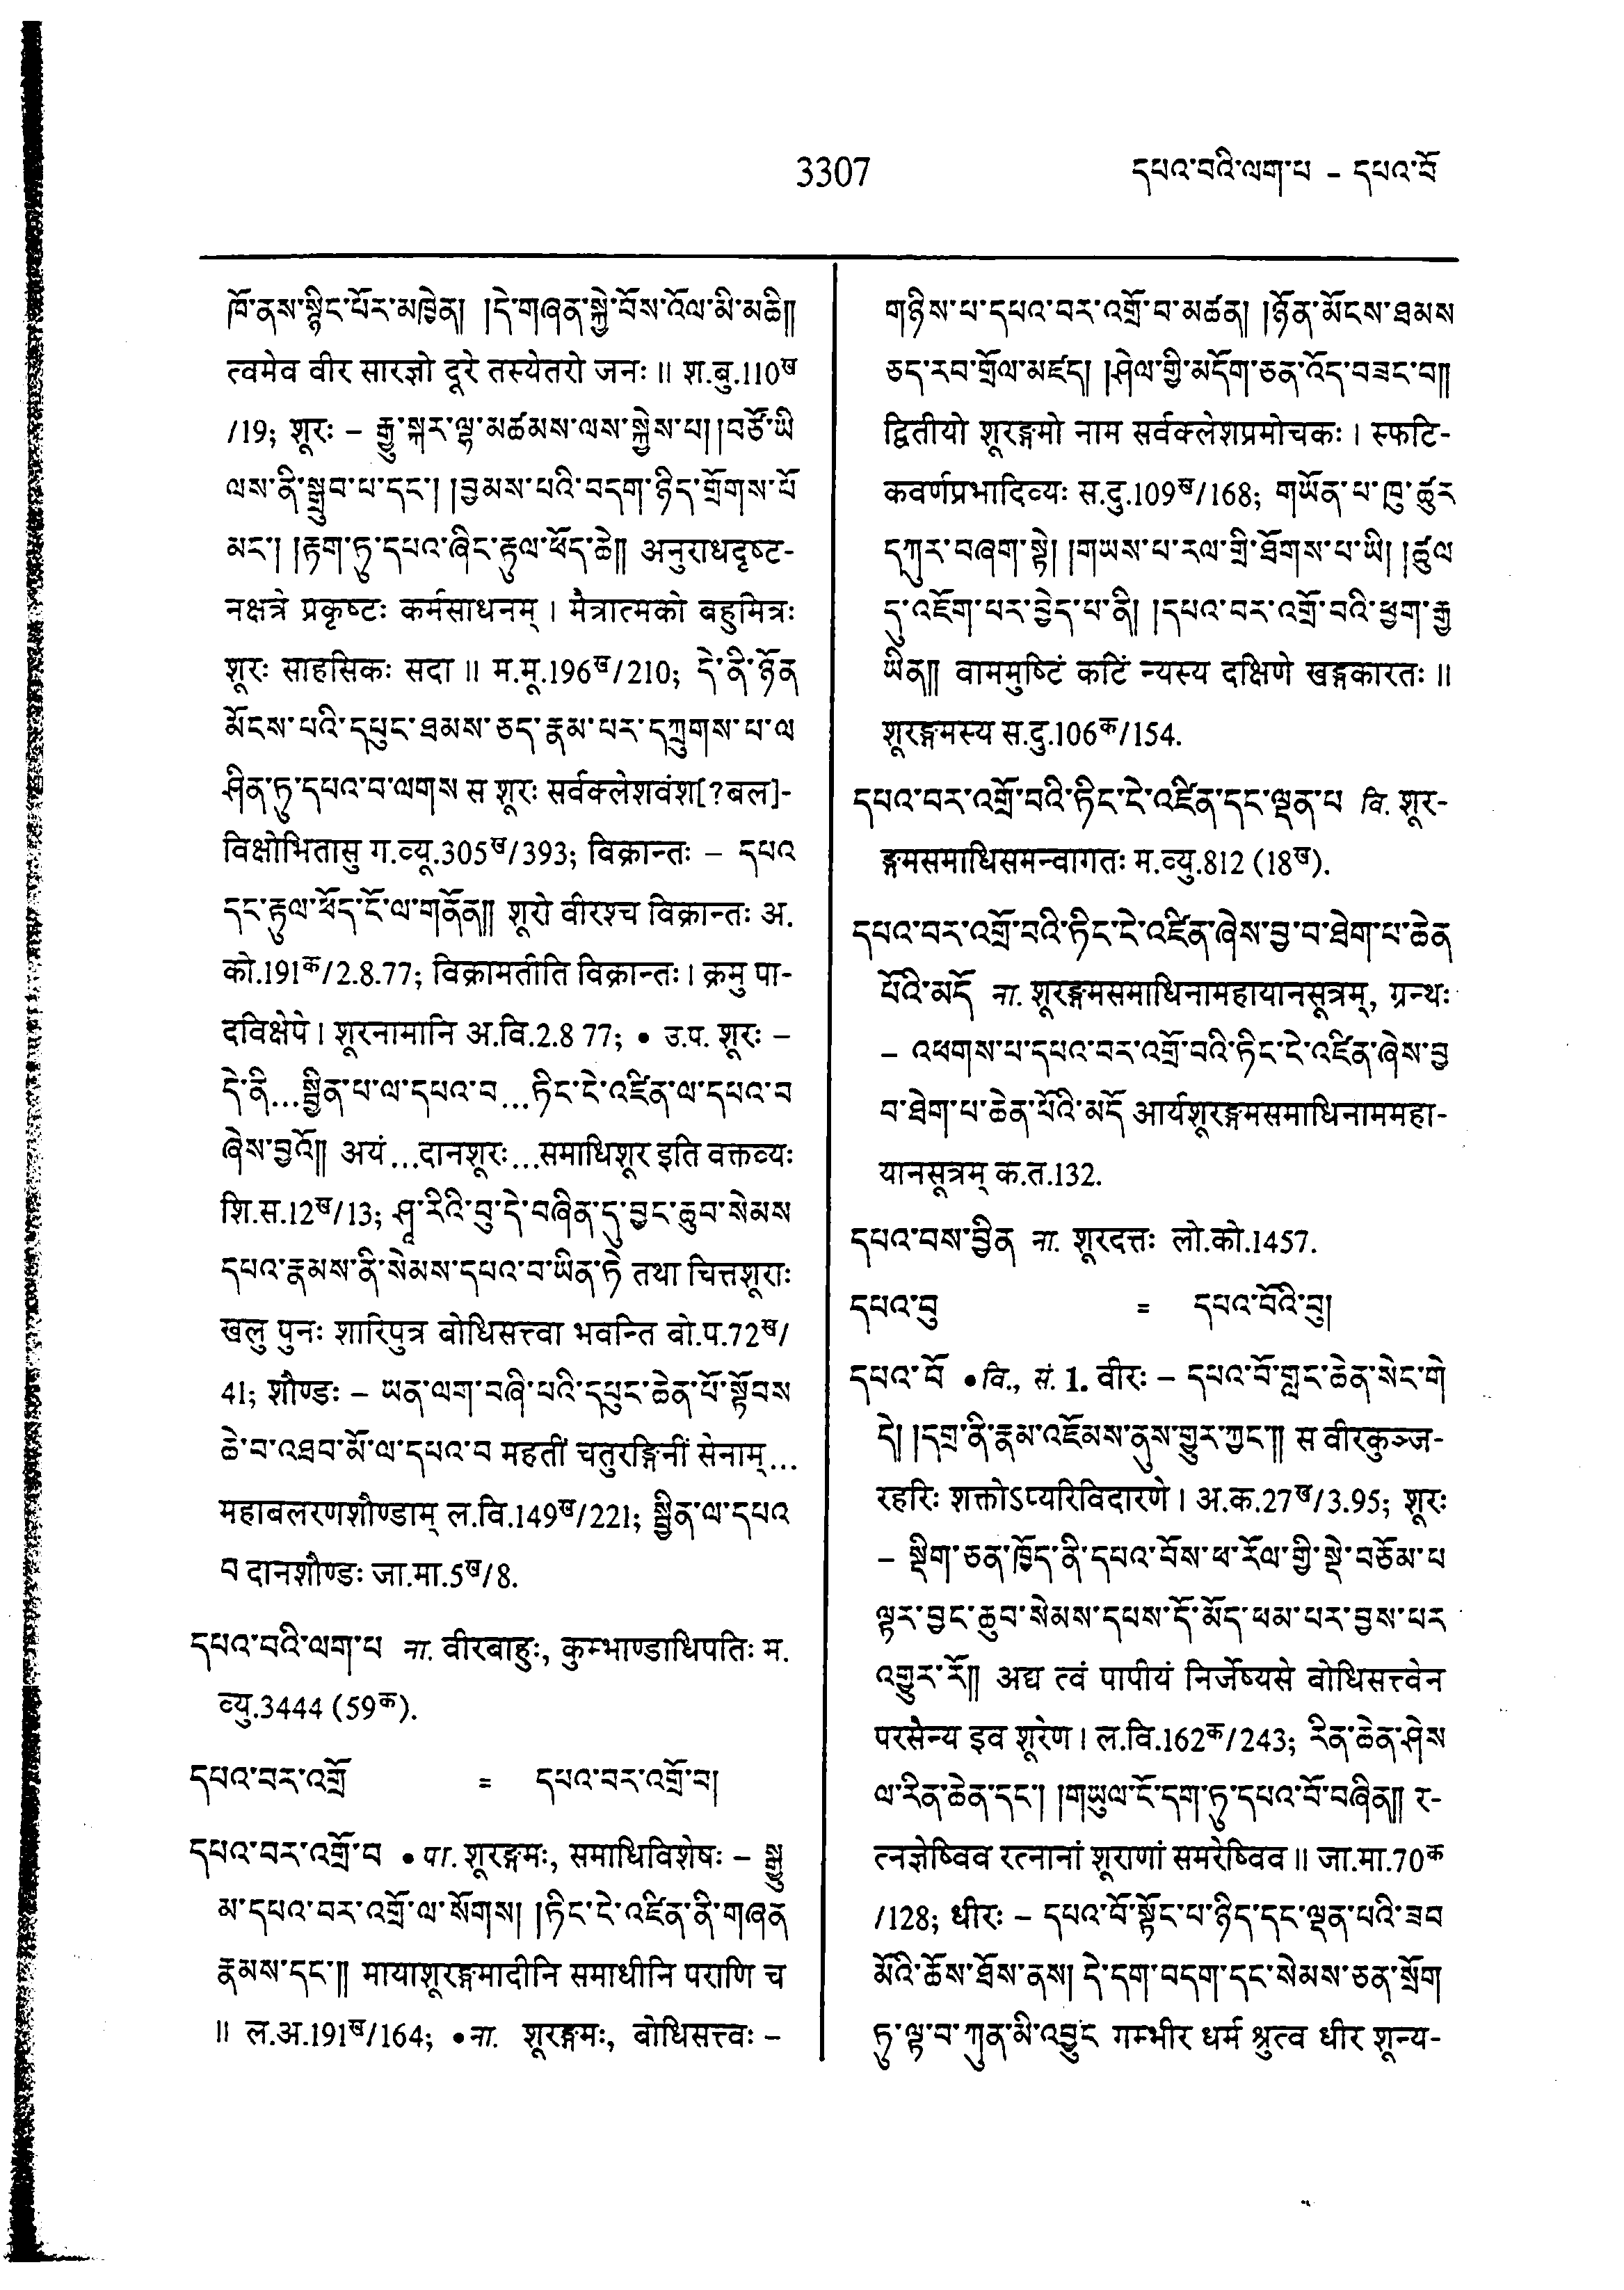 3307
དཔའ་བའི་ལག་པ – དཔའ་བོ
ཁོ་ནས་སྙིང་པོར་མཁྱེན། །དེ་གཞན་སྐྱེ་བོས་འོལ་མི་མཆི༎
त्वमेव वीर सारज्ञो दूरे तस्येतरो जनः ॥ श.बु.110ख
/19; शूरः – རྒྱུ་སྐར་ལྷ་མཚམས་ལས་སྐྱེས་པ། །བཙོ་ཡི
ལས་ནི་སྒྲུབ་པ་དང་། །བྱམས་པའི་བདག་ཉིད་གྲོགས་པོ
མང་། །རྟག་ཏུ་དཔའ་ཞིང་རྟུལ་ཕོད་ཆེ༎ अनुराधदृष्ट-
नक्षत्रे प्रकृष्टः कर्मसाधनम् । मैत्रात्मको बहुमित्रः
शूरः साहसिकः सदा ॥ म.मू.196ख/210; དེ་ནི་ཉོན
མོངས་པའི་དཔུང་ཐམས་ཅད་རྣམ་པར་དཀྲུགས་པ་ལ
ཤིན་ཏུ་དཔའ་བ་ལགས स शूरः सर्वक्लेशवंश[?बल]-
विक्षोभितासु ग.व्यू.305ख/393; विक्रान्तः – དཔའ
དང་རྟུལ་ཕོད་ངོ་ལ་གནོན༎ शूरो वीरश्च विक्रान्तः अ.
को.191क/2.8.77; विक्रामतीति विक्रान्तः । क्रमु पा-
दविक्षेपे । शूरनामानि अ.वि.2.8 77; • उ.प. शूरः –
དེ་ནི...སྦྱིན་པ་ལ་དཔའ་བ...ཏིང་ངེ་འཛིན་ལ་དཔའ་བ
ཞེས་བྱའོ༎ अयं...दानशूरः...समाधिशूर इति वक्तव्यः
शि.स.12ख/13; ཤཱ་རིའི་བུ་དེ་བཞིན་དུ་བྱང་ཆུབ་སེམས
དཔའ་རྣམས་ནི་སེམས་དཔའ་བ་ཡིན་ཏེ तथा चित्तशूराः
खलु पुनः शारिपुत्र बोधिसत्त्वा भवन्ति बो.प.72ख/
41; शौण्डः – ཡན་ལག་བཞི་པའི་དཔུང་ཆེན་པོ་སྟོབས
ཆེ་བ་འཐབ་མོ་ལ་དཔའ་བ महतीं चतुरङ्गिनीं सेनाम्...
महाबलरणशौण्डाम् ल.वि.149ख/221; སྦྱིན་ལ་དཔའ
བ दानशौण्डः जा.मा.5ख/8.
དཔའ་བའི་ལག་པ ना. वीरबाहुः, कुम्भाण्डाधिपतिः म.
व्यु.3444 (59क).
དཔའ་བར་འགྲོ = དཔའ་བར་འགྲོ་བ།
དཔའ་བར་འགྲོ་བ • पा. शूरङ्गमः, समाधिविशेषः – སྒྱུ
མ་དཔའ་བར་འགྲོ་ལ་སོགས། །ཏིང་ངེ་འཛིན་ནི་གཞན
རྣམས་དང་༎ मायाशूरङ्गमादीनि समाधीनि पराणि च
॥ ल.अ.191ख/164; • ना. शूरङ्गमः, बोधिसत्त्वः –
གཉིས་པ་དཔའ་བར་འགྲོ་བ་མཚན། །ཉོན་མོངས་ཐམས
ཅད་རབ་གྲོལ་མཛད། །ཤེལ་གྱི་མདོག་ཅན་འོད་བཟང་བ༎
द्वितीयो शूरङ्गमो नाम सर्वक्लेशप्रमोचकः । स्फटि-
कवर्णप्रभादिव्यः स.दु.109ख/168; གཡོན་པ་ཁུ་ཚུར
དཀུར་བཞག་སྟེ། །གཡས་པ་རལ་གྲི་ཐོགས་པ་ཡི། །ཚུལ
དུ་འཇོག་པར་བྱེད་པ་ནི། །དཔའ་བར་འགྲོ་བའི་ཕྱག་རྒྱ
ཡིན༎ वाममुष्टिं कटिं न्यस्य दक्षिणे खड्गकारतः ॥
शूरङ्गमस्य स.दु.106क/154.
དཔའ་བར་འགྲོ་བའི་ཏིང་ངེ་འཛིན་དང་ལྡན་པ वि. शूर-
ङ्गमसमाधिसमन्वागतः म.व्यु.812 (18ख).
དཔའ་བར་འགྲོ་བའི་ཏིང་ངེ་འཛིན་ཞེས་བྱ་བ་ཐེག་པ་ཆེན
པོའི་མདོ ना. शूरङ्गमसमाधिनामहायानसूत्रम्, ग्रन्थः
– འཕགས་པ་དཔའ་བར་འགྲོ་བའི་ཏིང་ངེ་འཛིན་ཞེས་བྱ
བ་ཐེག་པ་ཆེན་པོའི་མདོ आर्यशूरङ्गमसमाधिनाममहा-
यानसूत्रम् क.त.132.
དཔའ་བས་བྱིན ना. शूरदत्तः लो.को.1457.
དཔའ་བུ = དཔའ་བོའི་བུ།
དཔའ་བོ • वि., सं. 1. वीरः – དཔའ་བོ་གླང་ཆེན་སེང་གེ
དེ། །དགྲ་ནི་རྣམ་འཇོམས་ནུས་གྱུར་ཀྱང་༎ स वीरकुञ्ज-
रहरिः शक्तोऽप्यरिविदारणे । अ.क.27ख/3.95; शूरः
– སྡིག་ཅན་ཁྱོད་ནི་དཔའ་བོས་ཕ་རོལ་གྱི་སྡེ་བཅོམ་པ
ལྟར་བྱང་ཆུབ་སེམས་དཔས་དོ་མོད་ཕམ་པར་བྱས་པར
འགྱུར་རོ༎ अद्य त्वं पापीयं निर्जेष्यसे बोधिसत्त्वेन
परसैन्य इव शूरेण । ल.वि.162क/243; རིན་ཆེན་ཤེས
ལ་རིན་ཆེན་དང་། །གཡུལ་ངོ་དག་ཏུ་དཔའ་བོ་བཞིན༎ र-
त्नज्ञेष्विव रत्नानां शूराणां समरेष्विव ॥ जा.मा.70क
/128; धीरः – དཔའ་བོ་སྟོང་པ་ཉིད་དང་ལྡན་པའི་ཟབ
མོའི་ཆོས་ཐོས་ནས། དེ་དག་བདག་དང་སེམས་ཅན་སྲོག
ཏུ་ལྟ་བ་ཀུན་མི་འབྱུང गम्भीर धर्म श्रुत्व धीर शून्य-